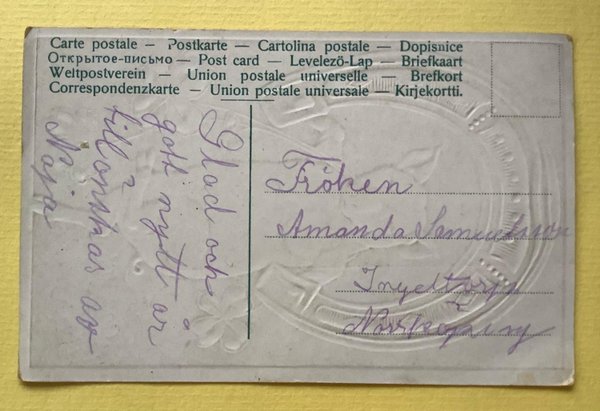 Carte postale — Postkarte — Cartolina postale — Dopisnice
Открытое-письмо — Post card — Levelező-Lap — Briefkaart
Weltpostverein — Union postale universelle — Brefkort
Correspondenzkarte — Union postale universale — Kirjekortti.
Glad och
gott nytt år
tillönskas av
Naja
Fröken
Amanda Samuelsson
Norrköping